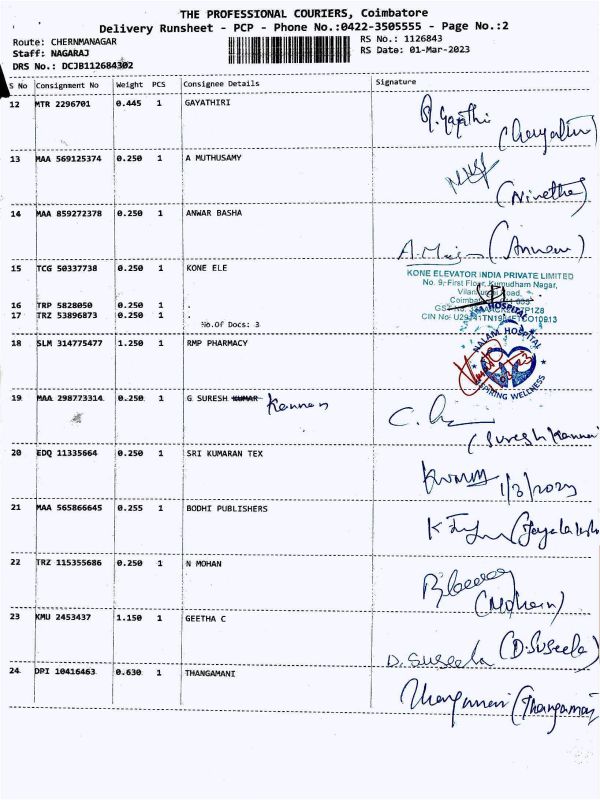 THE PROFESSIONAL COURIERS, Coimbatore
Delivery Runsheet - PCP - Phone No.:0422-3505555 - Page No.:2
Route: CHERNMANAGAR
RS No.: 1126843
Staff: NAGARAJ
RS Date: 01-Mar-2023
DRS No.: DCJB112684302
S No Consignment No Weight PCS Consignee Details Signature
12 MTR 2296701 0.445 1 GAYATHIRI
13 MAA 569125374 0.250 1 A MUTHUSAMY
(Nivetha)
14 MAA 859272378 0.250 1 ANWAR BASHA
15 TCG 50337738 0.250 1 KONE ELE
KONE ELEVATOR INDIA PRIVATE LIMITED
No. 9, First Floor, Kumudham Nagar,
16 TRP 5828050 0.250 1 .
17 TRZ 53896873 0.250 1 .
No.Of Docs: 3
18 SLM 314775477 1.250 1 RMP PHARMACY
HOSPITAL
WELLNESS
19 MAA 298773314 0.250 1 G SURESH KUMAR Kannan
(Suresh Kannan
20 EDQ 11335664 0.250 1 SRI KUMARAN TEX
1/3/2023
21 MAA 565866645 0.255 1 BODHI PUBLISHERS
22 TRZ 115355686 0.250 1 N MOHAN
(Mohan)
23 KMU 2453437 1.150 1 GEETHA C
D. Suseela (D.Suseela)
24 DPI 10416463 0.630 1 THANGAMANI
Thangamani (Thangamani